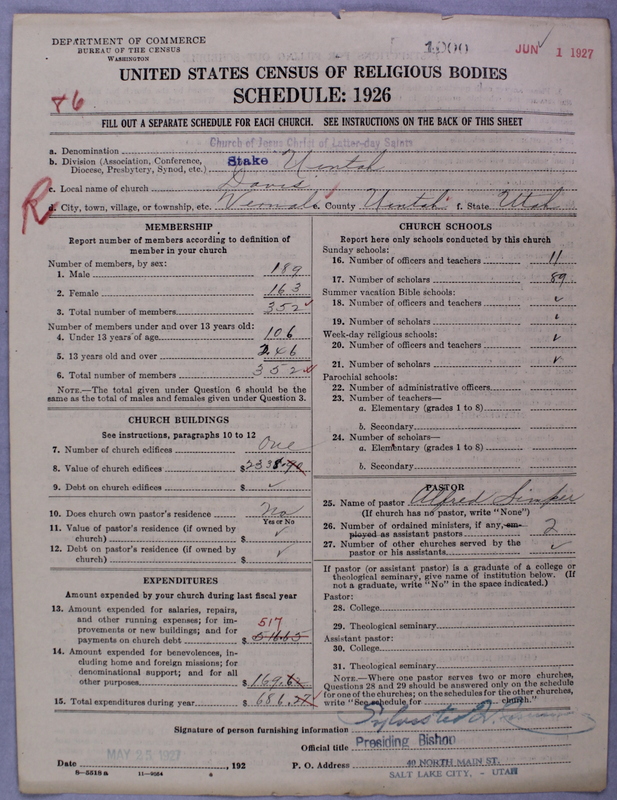 DEPARTMENT OF COMMERCE
BUREAU OF THE CENSUS
WASHINGTON
1900
JUN 1 1927
UNITED STATES CENSUS OF RELIGIOUS BODIES
SCHEDULE: 1926
FILL OUT A SEPARATE SCHEDULE FOR EACH CHURCH. SEE INSTRUCTIONS ON THE BACK OF THIS SHEET
a. Denomination Church of Jesus Christ of Latter-day Saints
b. Division (Association, Conference, Diocese, Presbytery, Synod, etc.) Stake Uintah
c. Local name of church Davis
d. City, town, village, or township, etc. Vernal e. County Uintah f. State Utah
R
MEMBERSHIP
Report number of members according to definition of
member in your church
Number of members, by sex:
1. Male 189
2. Female 163
3. Total number of members 352
Number of members under and over 13 years old:
4. Under 13 years of age 106
5. 13 years old and over 246
6. Total number of members 352
NOTE.—The total given under Question 6 should be the
same as the total of males and females given under Question 3.
CHURCH BUILDINGS
See instructions, paragraphs 10 to 12
7. Number of church edifices One
8. Value of church edifices $
9. Debt on church edifices $
10. Does church own pastor's residence No
Yes or No
11. Value of pastor's residence (if owned by
church) $
12. Debt on pastor's residence (if owned by
church) $
EXPENDITURES
Amount expended by your church during last fiscal year
13. Amount expended for salaries, repairs,
and other running expenses; for im-
provements or new buildings; and for
payments on church debt $ 517
14. Amount expended for benevolences, in-
cluding home and foreign missions; for
denominational support; and for all
other purposes $ 169.62
15. Total expenditures during year $ 686
CHURCH SCHOOLS
Report here only schools conducted by this church
Sunday schools:
16. Number of officers and teachers 11
17. Number of scholars 89
Summer vacation Bible schools:
18. Number of officers and teachers
19. Number of scholars
Week-day religious schools:
20. Number of officers and teachers
21. Number of scholars
Parochial schools:
22. Number of administrative officers
23. Number of teachers—
a. Elementary (grades 1 to 8)
b. Secondary
24. Number of scholars—
a. Elementary (grades 1 to 8)
b. Secondary
PASTOR
25. Name of pastor Alfred Simper
(If church has no pastor, write "None")
26. Number of ordained ministers, if any, em-
ployed as assistant pastors 2
27. Number of other churches served by the
pastor or his assistants
If pastor (or assistant pastor) is a graduate of a college or
theological seminary, give name of institution below. (If
not a graduate, write "No" in the space indicated.)
Pastor:
28. College
29. Theological seminary
Assistant pastor:
30. College
31. Theological seminary
NOTE.—Where one pastor serves two or more churches,
Questions 28 and 29 should be answered only on the schedule
for one of the churches; on the schedules for the other churches,
write "See schedule for church."
Signature of person furnishing information
Official title Presiding Bishop
Date MAY 25 1927 , 192 P. O. Address 40 NORTH MAIN ST.
SALT LAKE CITY, - UTAH
8-5518a 11-9064